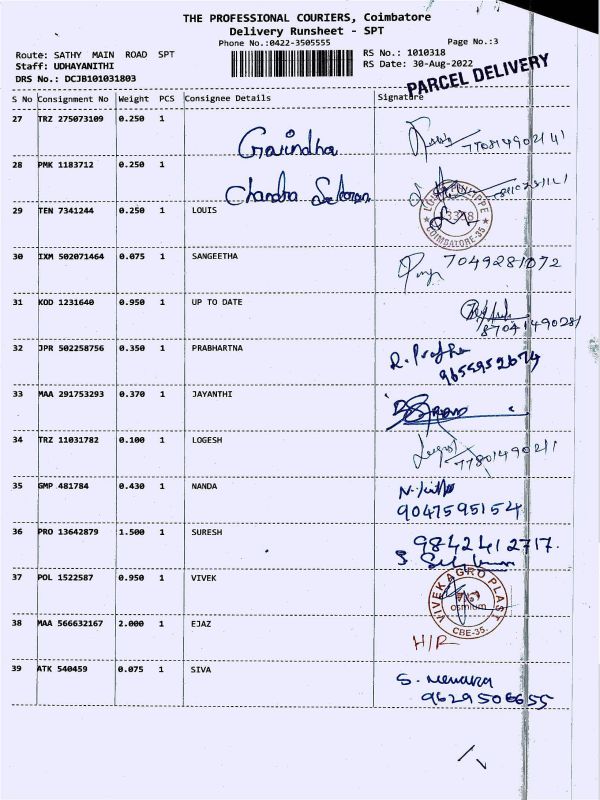 THE PROFESSIONAL COURIERS, Coimbatore
Delivery Runsheet - SPT
Phone No.:0422-3505555
Page No.:3
Route: SATHY MAIN ROAD SPT
RS No.: 1010318
Staff: UDHAYANITHI
RS Date: 30-Aug-2022
DRS No.: DCJB101031803
PARCEL DELIVERY
S No Consignment No Weight PCS Consignee Details Signature
27 TRZ 275073109 0.250 1 Govindha
28 PMK 1183712 0.250 1 Chandra Sekaran
29 TEN 7341244 0.250 1 LOUIS
COIMBATORE-35
30 IXM 502071464 0.075 1 SANGEETHA 7049281072
31 KOD 1231640 0.950 1 UP TO DATE
32 JPR 502258756 0.350 1 PRABHARTNA
9655952674
33 MAA 291753293 0.370 1 JAYANTHI
34 TRZ 11031782 0.100 1 LOGESH
35 GMP 481784 0.430 1 NANDA
9047595154
36 PRO 13642879 1.500 1 SURESH 9842412717.
37 POL 1522587 0.950 1 VIVEK
VIVEK AGRO PLAST
osmium
CBE-35.
38 MAA 566632167 2.000 1 EJAZ
H/R
39 ATK 540459 0.075 1 SIVA S. Menaka
9629506655